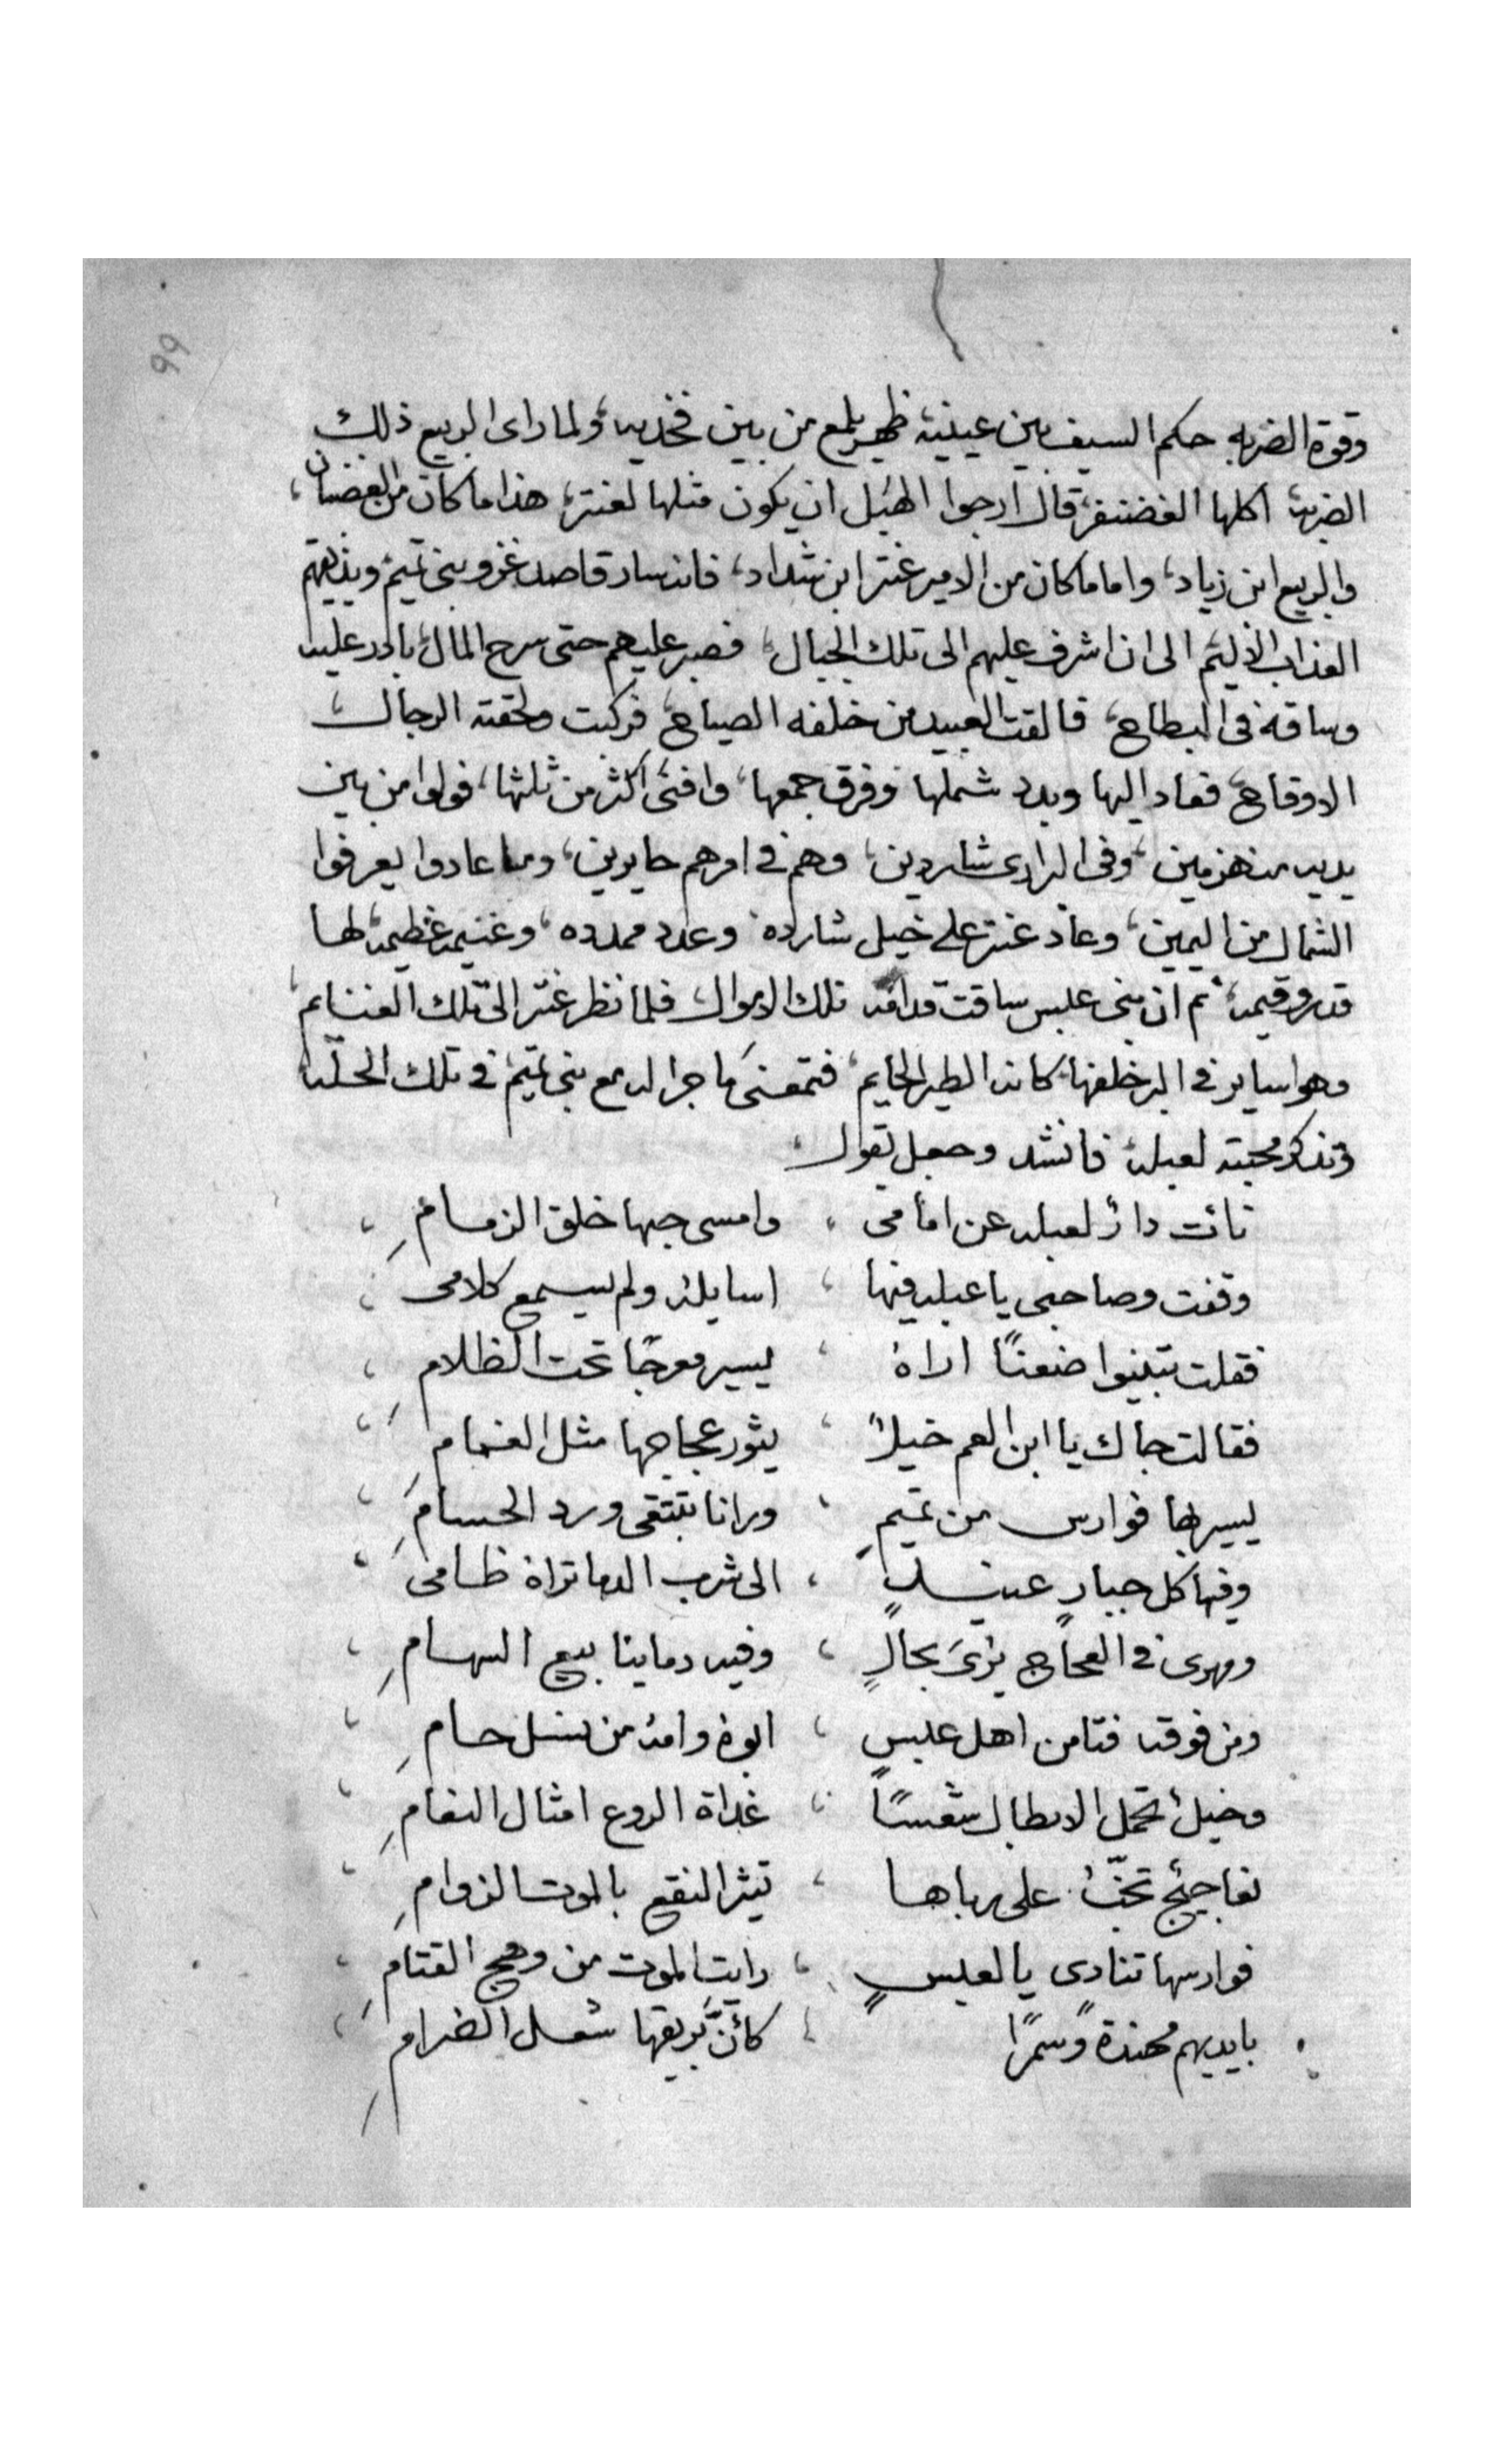 99
وقوة الضربه حكم السيف بين عينيه ظهر يلمع من بين فخديه، ولما راى الربيع ذلك
الضربه اكلها الغضنفر، قال ارجوا الهبل ان يكون مثلها لعنتر، هذا ما كان من الغضبان،
والربيع ابن زياد، واما ما كان من الامير عنتر ابن شداد، فانه سار قاصد غزو بنى تميم ويذيقهم
العذاب الاليم الى ان اشرف عليهم الى تلك الجبال، فصبر عليهم حتى سرح المال، بادر عليه
وساقه فى البطاح، فالقت العبيد من خلفه الصياح، فركبت ولحقته الرجال،
الاوقاح، فعاد اليها وبدد شملها وفرق جمعها، وافنى اكثر من ثلثها، فولوا من بين
يديه منهزمين، وفى البرارى شاردين، وهم فى امرهم حايرين، وما عادوا يعرفوا
الشمال من اليمين، وعاد عنتر على خيل شارده وعدد ممدده، وغنيمه عظيمه، لها
قدر وقيمه، ثم ان بنى عبس ساقت قدامه تلك الاموال فلما نظر عنتر الى تلك الغنايم،
وهوا ساير فى البر خلفها كانه الطير الحايم، فتمعنى ما جرا له مع بنى تميم فى تلك الحله
وتذكر محبته لعبله، فانشد وجعل يقول،
نائت دار لعبله عن امامى ، وامسى حبها خلق الزمام ،
وقفت وصاحبى يا عبله فيها ، اسايله ولم يسمع كلامى ،
فقلت تبينوا ضعنًا اراه ، يسير معرجًا تحت الظلام ،
فقالت جاك يا ابن العم خيلاً ، يثور عجاجها مثل الغمام ،
يسير بها فوارس من تميمٍ ، ورانا تبتقى ورد الحسام ،
وفيها كل جبارٍ عنيدٍ ، الى شرب الدما تراه ظامى ،
ومهرى فى العجاج يرى بحالٍ ، وفيه دماينا بيع السهام ،
ومن فوقه فتا من اهل عبسٍ ، ابوه وامه من نسل حام ،
وخيل تحمل الابطال شعسًا ، غداة الروع امثال النعام ،
نعاجيج تخب على رباها ، تيثر النقع بالموت الزوام ،
فوارسها تنادى يا لعبسٍ ، رايت الموت من وهج القتام ،
بايديهم مهندة وسمرًا ، كأنَّ بريقها شعل الضرام ،